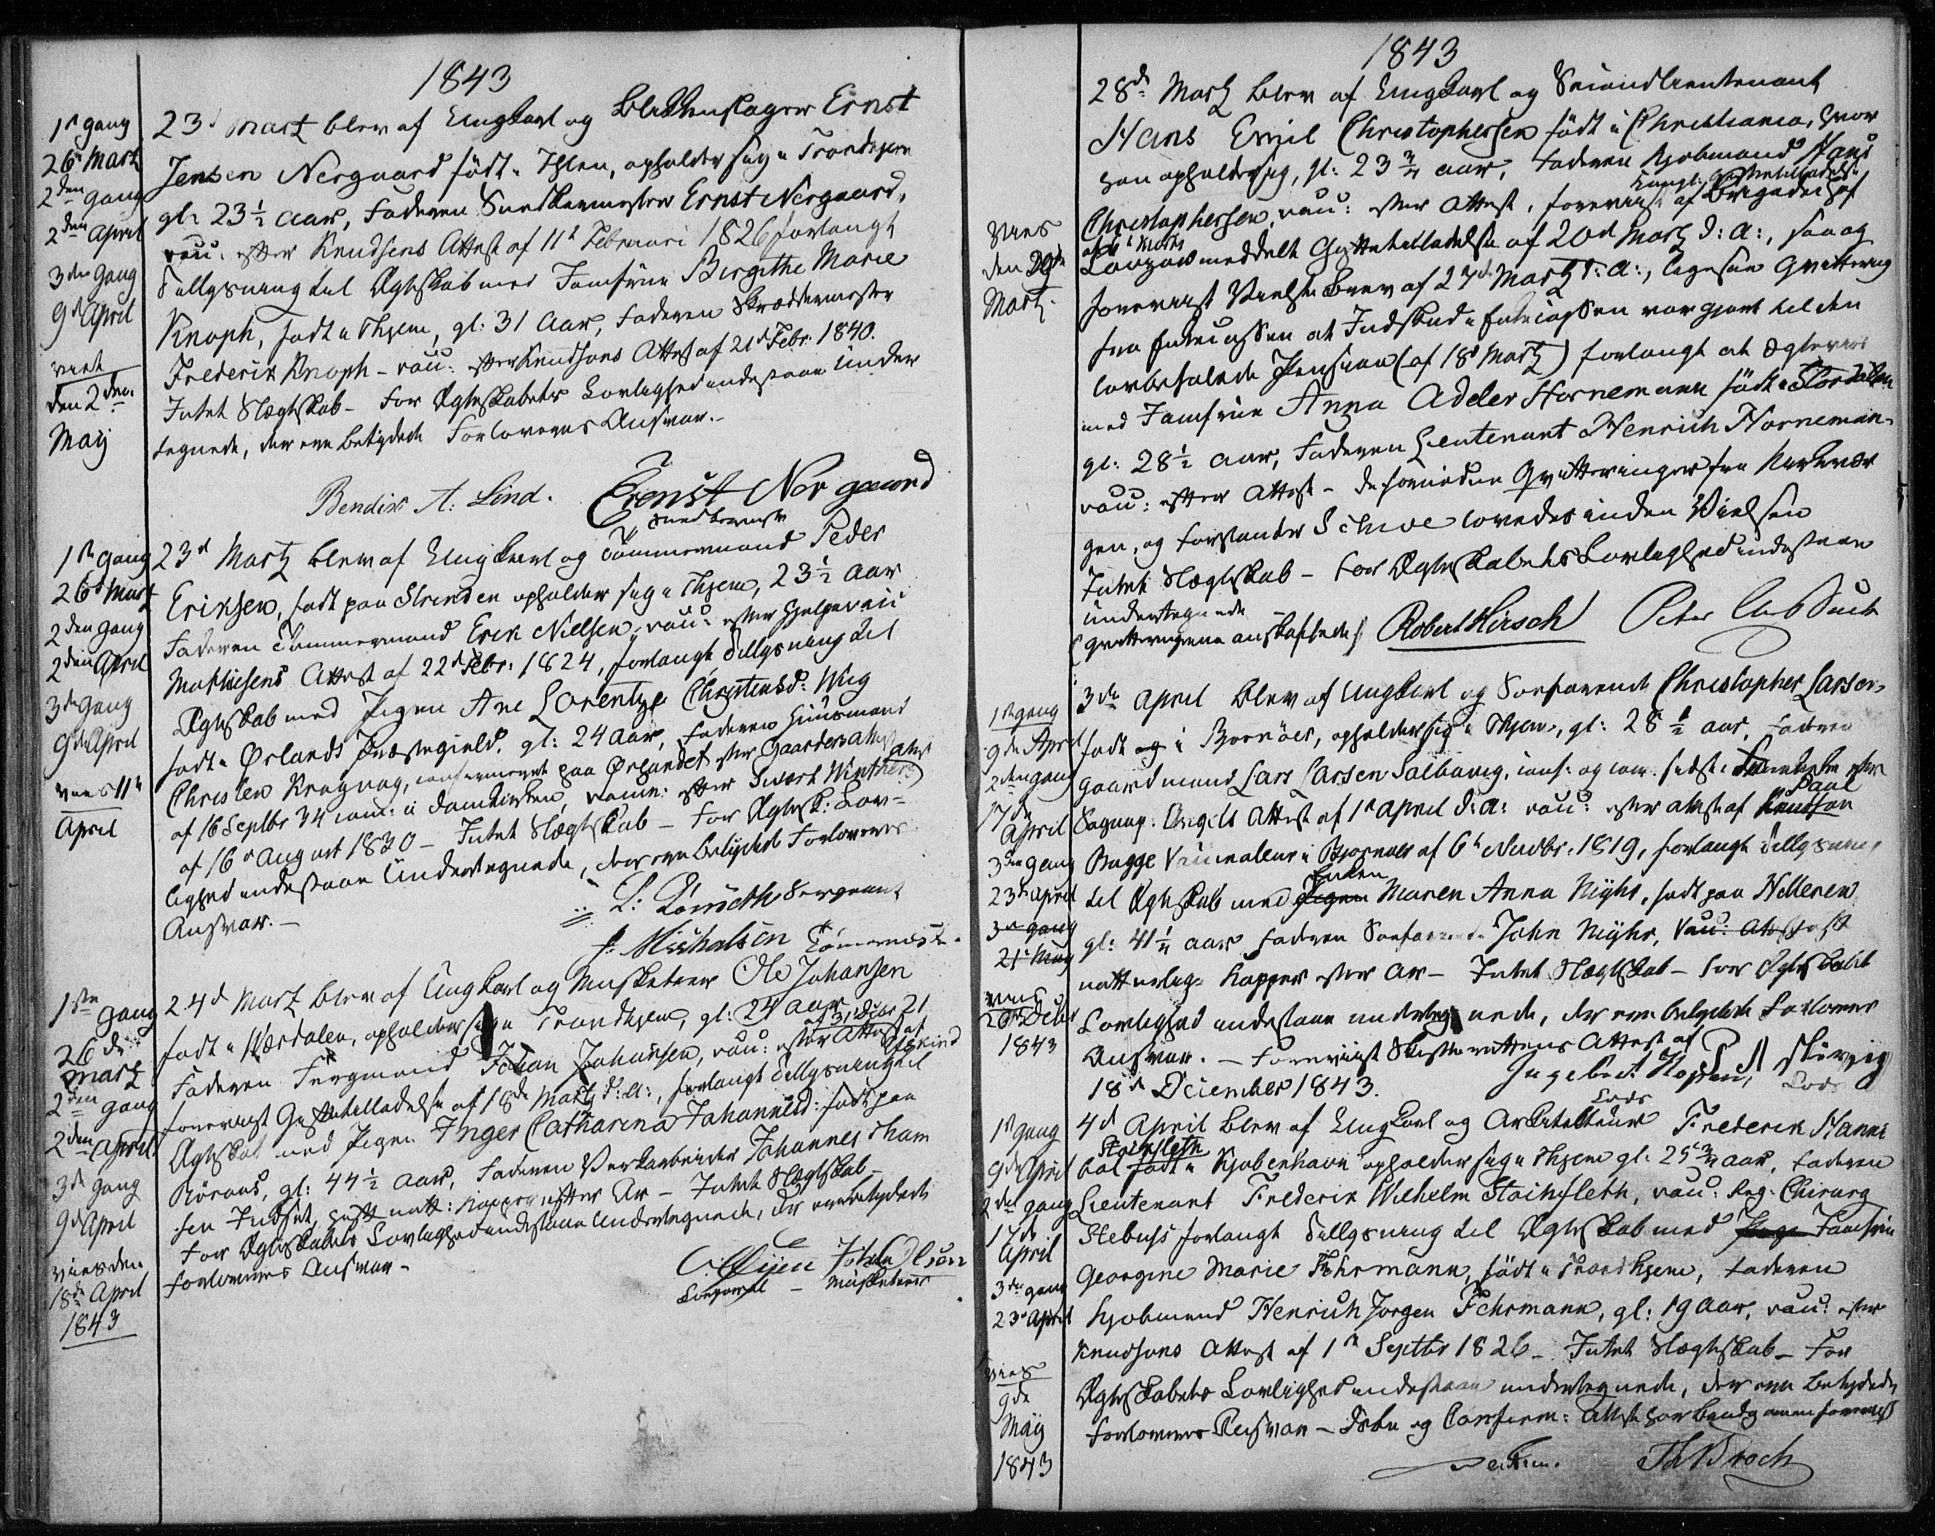 1843
1ste gang
26de Martz
2den gang
2den April
3die gang
9de April
viet
den 2den
May
23de Martz blev af Ungkarl og Blikkenslager Ernst
Jensen Norgaard født i Ihlen, opholder sig i Trondhjem
gl: 23½ aar, Faderen Snedkermester Ernst Norgaard,
vacc: efter Knudsens Attest af 11te Februari 1826 forlangt
Tillysning til Ægteskab med Jomfrue Birgithe Marie
Knoph, født i Thjem, gl: 31 Aar, Faderen Skræddermester
Frederik Knoph – vacc: efter Knudsons Attest af 21de Febr. 1840.
Intet Slægtskab – For Ægteskabets Lovlighed indestaae Under
tegnede, der ere betydede Forloveres Ansvar. –
Bendix A. Lind. Ernst Norgaard
Snedkermester
1ste Gang
26de Martz
2den gang
2den April
3die Gang
9de April
viet 11te
April
23de Martz blev af Ungkarl og Tømmermand Peder
Eriksen, født paa Strinden opholder sig i Thjem, 23½ aar
Faderen Tømmermand Erik Nielsen, vacc: efter Hjelpevacc
Mathiesens Attest af 22de Febr: 1824, forlangt Tillysning til
Ægteskab med Pigen Ane Lorentze Christensd: Wiig
født i Ørlands Præstegield, gl: 24 Aar, Faderen Huusmand
Christen Kragvag, confirmeret paa Ørlandet efter Gaarders Attest
af 16 Septbr 34 com: i Domkirken, vacc: efter Sivert Winthers Attest
af 16de August 1830 – Intet Slægtskab – For Ægtesk: Lov=
lighed indestaae Undertegnede, der ere betydede Forloveres
Ansvar. –
L: Sergeant
J. Michalsen Tømermester.
1ste Gang
26de
Martz
2den gang
2den April
3die gang
9de April
vies den
18de April
1843
24de Martz blev af Ungkarl og Musketeer Ole Johansen
født i Værdalen, opholder sig i Trondhjem, gl: 24 aar,
Faderen Johan Johansen, vacc: efter Attest af 31 Decbr 21
foreviist Giftetilladelse af 18de Martz d: A:, forlangt Tillysning til
Ægteskab med Pigen Inger Catharina Johannesd: født paa
Röraas, gl: 44½ aar, Faderen Verksarbeider Johannes Tham
sen Indset, havt natt: Kopper efter Ar – Intet Slægtskab –
For Ægteskabets Lovlighed indestaae Undertegnede, der ere betydede
Forloveres Ansvar –
Johan Olsen
Corporal – Musketeer
1843
Vies
den 29de
Martz.
28de Martz blev af Ungkarl og Secondlieutenant
Hans Emil Christophersen født i Christiania, hvor
han opholder sig, gl: 23¾ aar, Faderen Kjøbmand Hans
Christophersen, vacc: efter Attest, foreviist af Brigadechef
meddelt Giftetilladelse af 20de Martz d: A:, saa og
foreviist Vielsesbrev af 27de Martz d: A:, ligesaa Qvittering
fra Enkecassen at Indskud i Enkecassen var gjort til den
lovbefalede Pension (af 18de Martz) forlangt at ægtevies
med Jomfrue Anna Adler Hornemann født i Stordalen
gl: 28½ aar, Faderen Lieutenant Henrich Horneman,
vacc: efter Attest – de fornødne Qvitteringer fra Kirkevær
gen, og Forstander Schive lovedes inden Vielsen
Intet Slægtskab – For Ægteskabets Lovlighed indestaae
undertegnede
(qvitteringene anskaffede) Robert Hirsch Peter
1ste gang
9de April
2den gang
17de
April
3die Gang
23de April
3die gang
21de May
vies
26de Decbr
1843
3die April blev af Ungkarl og Søefarende Christopher Larsen
født og i Bjørnöer, opholder sig i Thjem, gl: 28½ aar, Faderen
Gaardmand Lars Larsen Salbuvig, conf: og com. sidst i efter
Sogнеp: Angels Attest af 1ste April d: A: vacc: efter Attest af Knudson Paul
Bugge Vaccinateur i Bjørnöer af 6te Novbr: 1819, forlangt Tillysning
til Ægteskab med Pigen Enken Maren Anna Myhr, født paa Hitteren
gl: 41½ aar Faderen Søefarende John Myhr, vacc: Attest havt
naturlige Kopper efter Ar – Intet Slægtskab – For Ægteskabets
Lovlighed indestaae undertegnede, der ere betydede Forloveres
Ansvar. – Foreviist Skifterettens Attest af
18de December 1843.
Ingebret Hopen,
Lods
Lods
1ste gang
9de April
2den gang
17de
April
3die gang
23de April
vies
9de
May
1843
4de April blev af Ungkarl og Arkitekteur Frederik Hanni
bal Stockfleth født i Kjøbenhavn opholder sig i Thjem gl: 25¾ aar, Faderen
Lieutenant Frederik Wilhelm Stockfleth, vacc: Reg. Chirurg
forlangt Tillysning til Ægteskab med Pige Jomfrue
Georgine Marie Fehrmann, født i Trondhjem, Faderen
Kjøbmand Henrich Jorgen Fehrmann, gl: 19 aar, vacc: efter
Knudsons Attest af 1ste Septbr 1826 – Intet Slægtskab – For
Ægteskabets Lovlighed indestaae undertegnede, der ere betydede
Forloveres Ansvar – Døbe og Confirm: Attest for begge ere foreviist
Th Broch